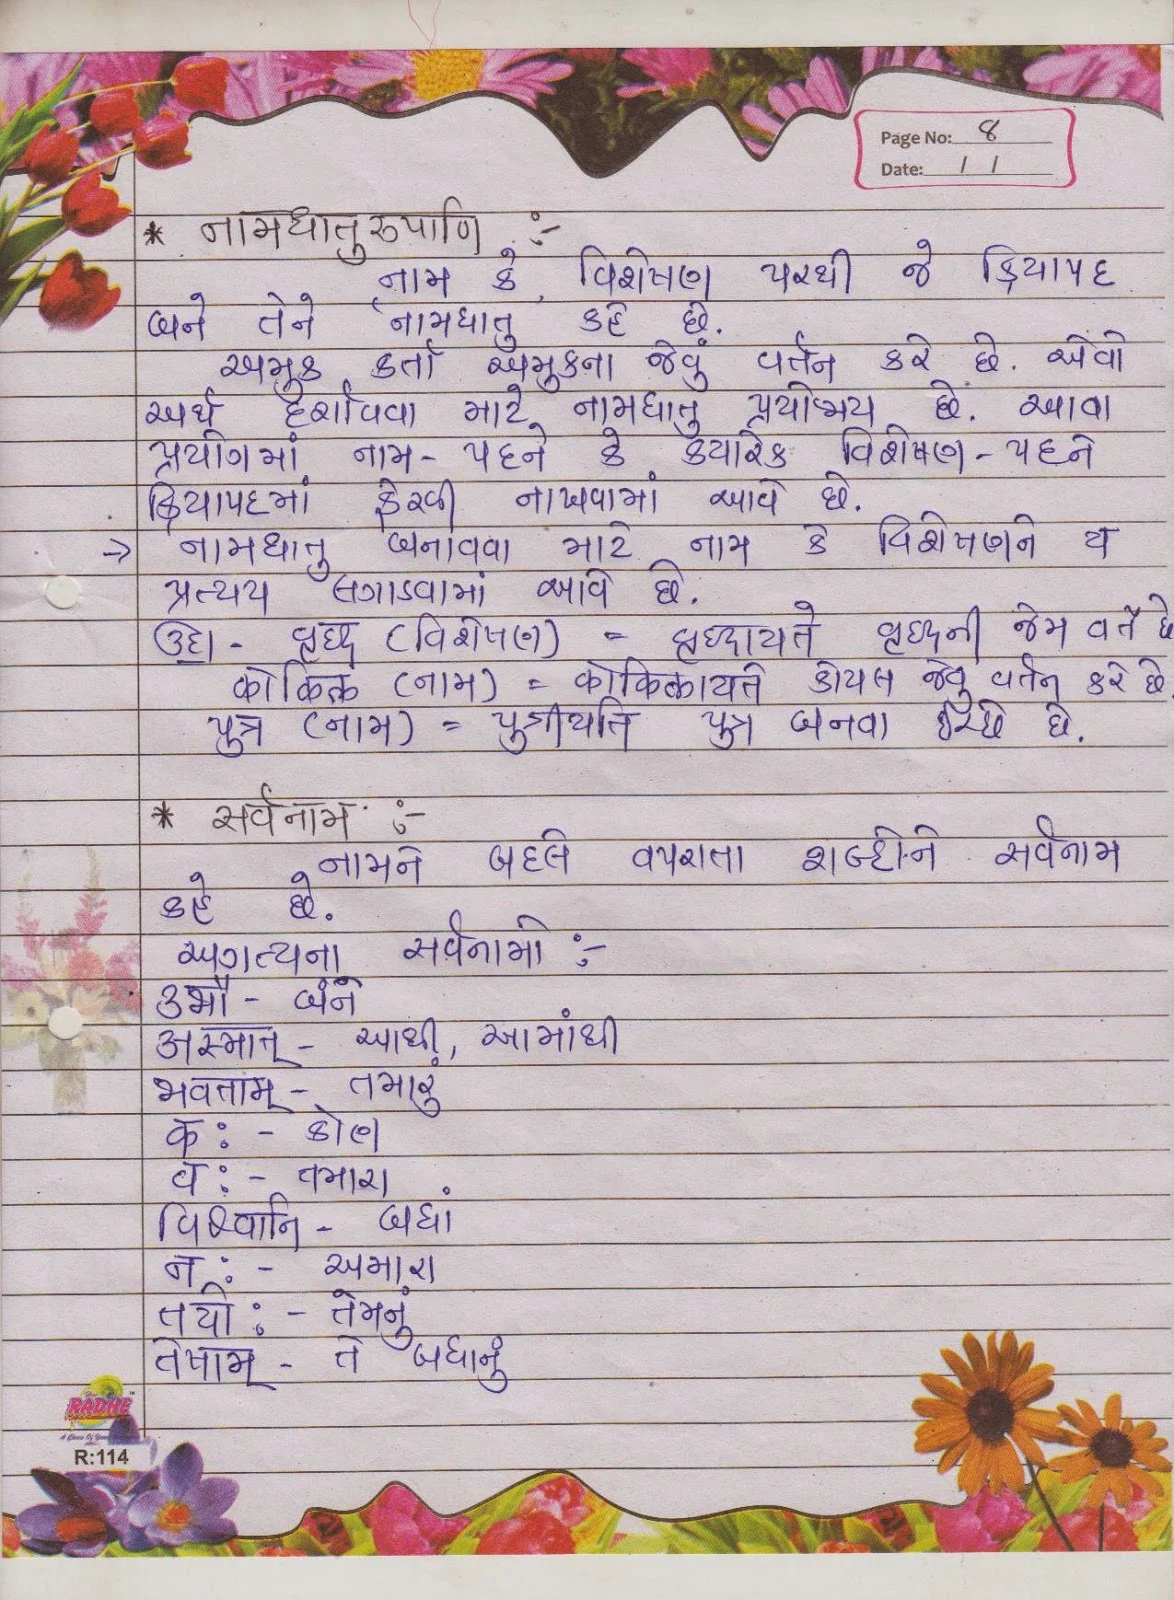 Page No: 8
Date: / /
* નામધાતુરુપાણિ :-
નામ કે વિશેષણ પરથી જે ક્રિયાપદ
બને તેને નામધાતુ કહે છે.
અમુક કર્તા અમુકના જેવું વર્તન કરે છે. એવો
અર્થ દર્શાવવા માટે નામધાતુ પ્રયોજાય છે. આવા
પ્રયોગમાં નામ-પદને કે ક્યારેક વિશેષણ-પદને
ક્રિયાપદમાં ફેરવી નાખવામાં આવે છે.
→ નામધાતુ બનાવવા માટે નામ કે વિશેષણને ય
પ્રત્યય લગાડવામાં આવે છે.
ઉદા - (વિશેષણ) = ની જેમ વર્તે છે
कोकिल (નામ) = कोकिलायते કોયલ જેવું વર્તન કરે છે.
પુત્ર (નામ) = પુત્રીયતિ પુત્ર બનવા ઈચ્છે છે.
* સર્વનામ :-
નામને બદલે વપરાતા શબ્દોને સર્વનામ
કહે છે.
અગત્યના સર્વનામો :-
उभौ - બંને
अस्मात् - આથી, આમાંથી
भवताम् - તમારું
क: - કોણ
व: - તમારા
विश्वानि - બધાં
न: - અમારા
तयो: - તેમનું
तेषाम् - તે બધાનું
RADHE
R:114